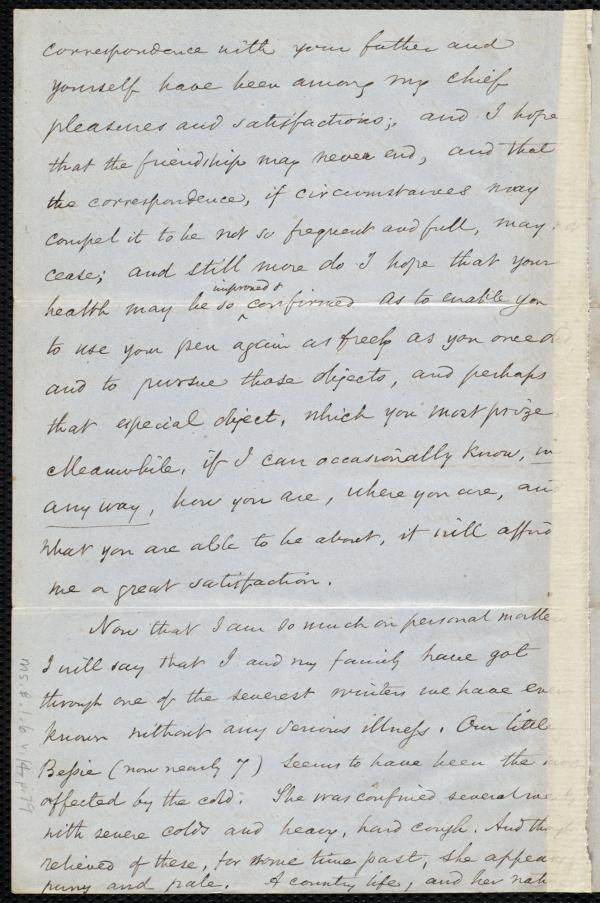 correspondence with your father and
yourself have been among my chief
pleasures and satisfactions; and I hope
that the friendship may never end, and that
the correspondence, if circumstances may
compel it to be not so frequent and full, may not
cease; and still more do I hope that your
improved &
health may be so ^ confirmed as to enable you
to use your pen again as freely as you once did
and to pursue those objects, and perhaps
that especial object, which you most prize.
Meanwhile, if I can occasionally know, in
any way, how you are, where you are, and
what you are able to be about, it will afford
me a great satisfaction.
Now that I am so much on personal matters
I will say that I and my family have got
through one of the severest winters we have ever
known without any serious illness. Our little
Bessie (now nearly 7) seems to have been the most
affected by the cold. She was confined several weeks
with severe colds and heavy, hard cough. And though
relieved of these, for some time past, she appears
puny and pale. A country life, and her
Ms.B.1.6 v.14 p.79